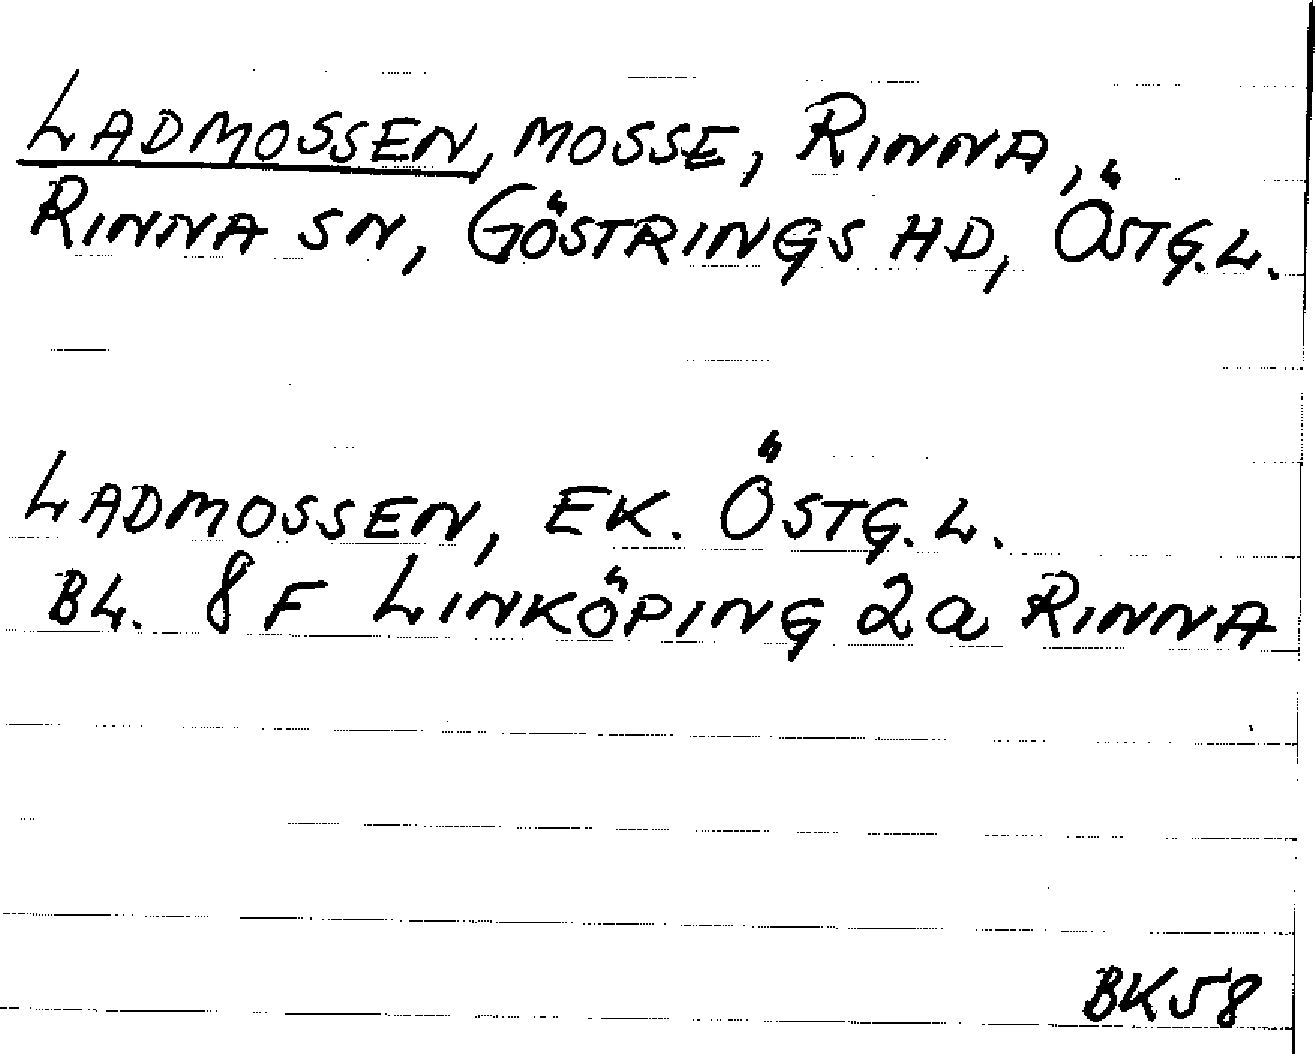 LADMOSSEN, MOSSE, RINNA,
RINNA SN, GÖSTRINGS HD, ÖSTG.L.
LADMOSSEN, EK. ÖSTG.L.
BL. 8 F LINKÖPING 2a RINNA
BK58